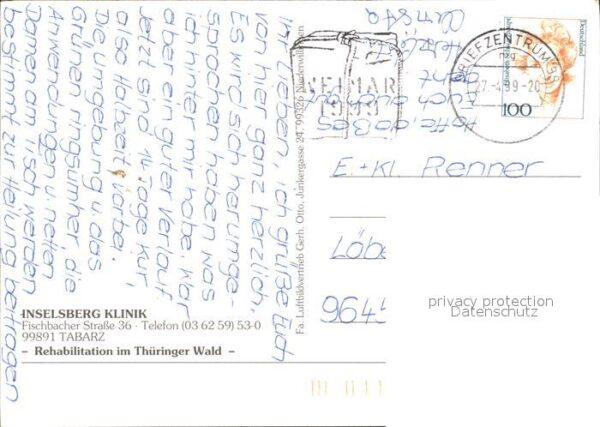 Ihr Lieben, ich grüße Euch
von hier ganz herzlich.
Es wird sich herumge-
sprochen haben was
ich hier mir habe. War
aber ein guter Verlauf
Jetzt sind 14 Tage Kur,
also Halbzeit vorbei.
Die Umgebung u. das
Grünen ringsumher die
Anwendungen u. netten
Damen am Tisch werden
bestimmt zur Heilung beitragen
Hoffe, daß es
Euch auch gut
geht.
Herzlichst
Christa
WEIMAR
1999
BRIEFZENTRUM 99
mg
27.-4.99-20
Deutschland
100
E. + Kl. Renner
Löbe
9645
privacy protection
Datenschutz
Fa. Luftbildvertrieb Gerh. Otto, Junkergasse 24, 99326 Niederwillingen
INSELSBERG KLINIK
Fischbacher Straße 36 · Telefon (03 62 59) 53-0
99891 TABARZ
– Rehabilitation im Thüringer Wald –